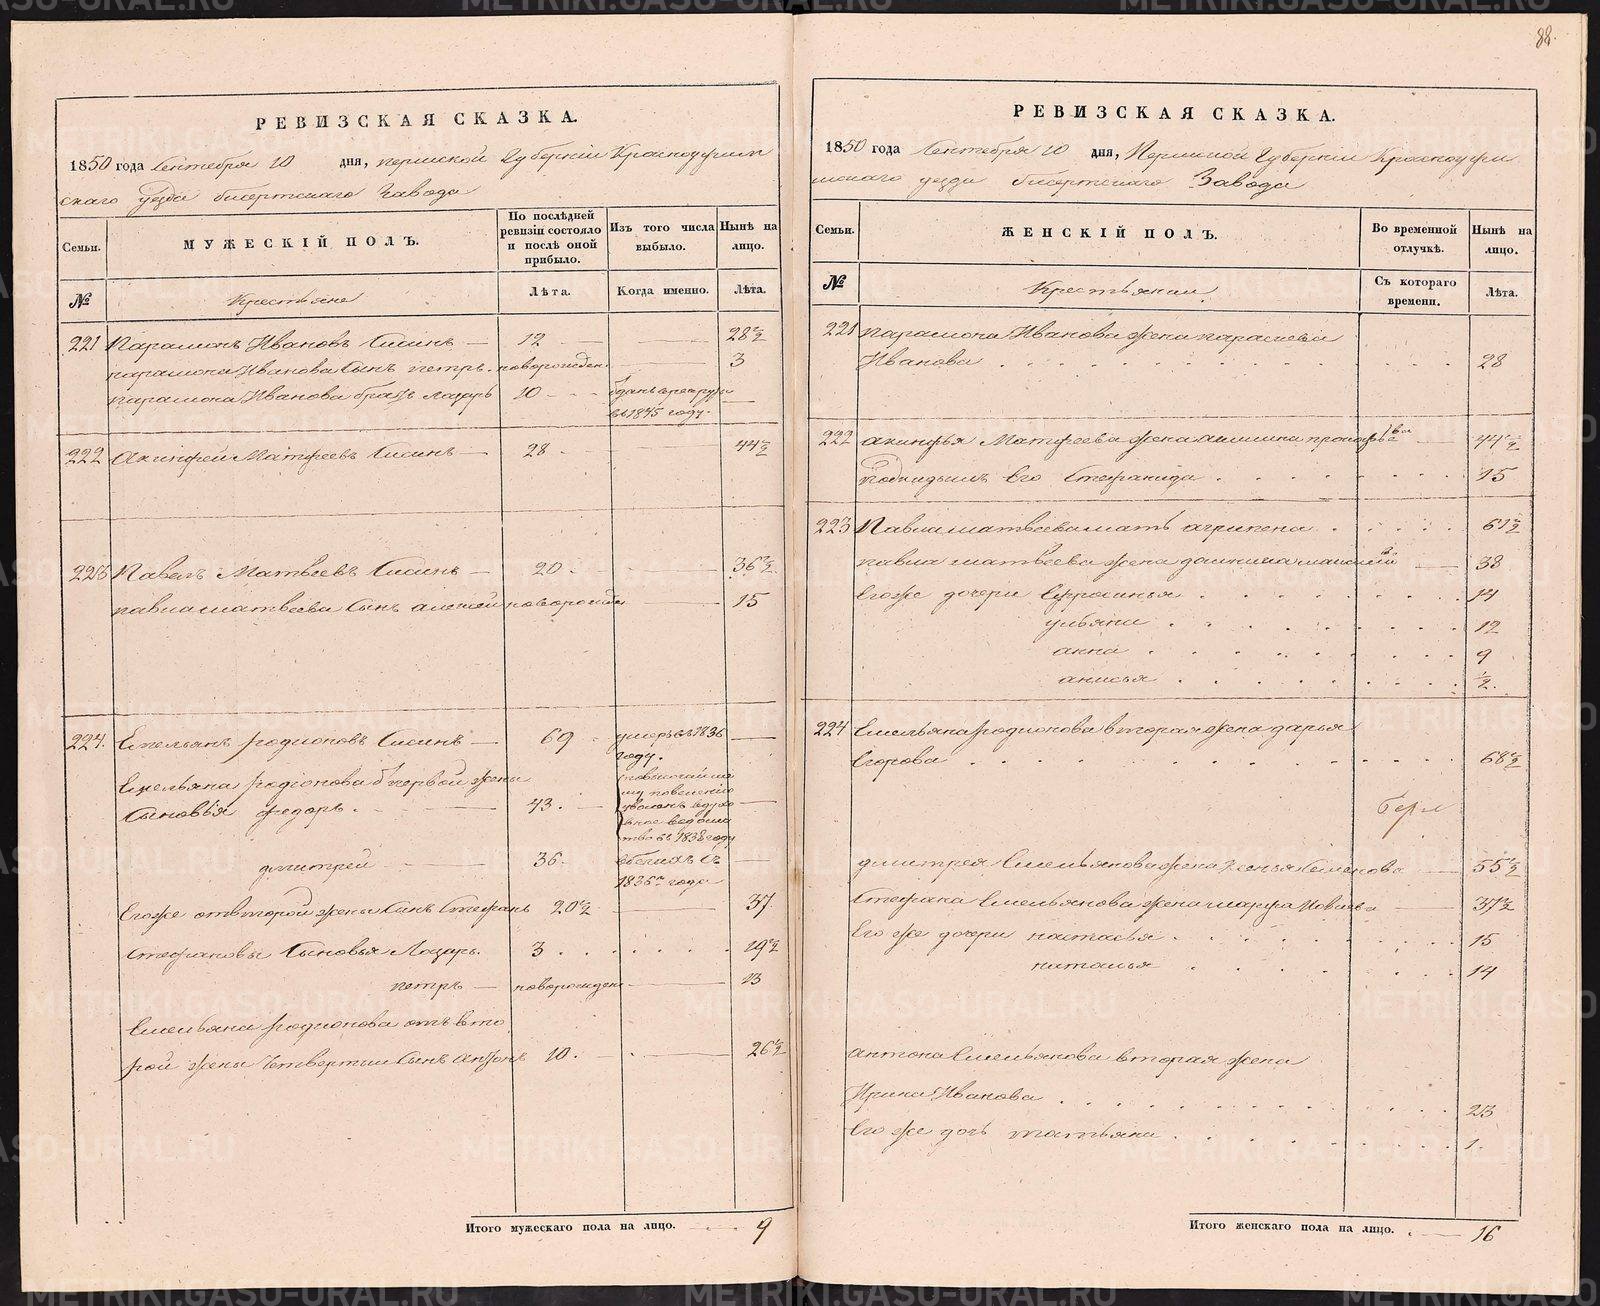 88.
РЕВИЗСКАЯ СКАЗКА.
1850 года Сентября 10 дня, пермской Губернiи Красноуфим
скаго уезда бисертскаго Завода
Семьи.
МУЖЕСКIЙ ПОЛЪ.
По послѣдней ревизiи состояло и послѣ оной прибыло.
Изъ того числа выбыло.
Нынѣ на лицо.
№
Крестьяне
Лѣта.
Когда именно.
Лѣта.
221 Парамонъ Ивановъ Сисинъ — 12 28 1/2
парамона Иванова Сынъ петръ новорожден. 3
парамона Иванова братъ лазарь 10 отданъ в рекруты
въ 1845 году.
222 Акинфей Матфеевъ Сисинъ — 28 44 1/2
223 Павелъ Матвеевъ Сисинъ — 20 36 1/2
павла матвеева Сынъ алексей новорожден 15
224. Емельянъ родионовъ Сисинъ — 69 умеръ въ 1836
году.
Емельяна родiонова от первой жены
Сыновья федоръ 43.
ву 1838 году
дмитрей 36 в бегахъ съ
1836 года
Егоже от второй жены Сынъ Стефанъ 20 1/2 37
стефановы Сыновья Лазарь. 3 19 1/2
петръ — новорожден 13
Емельяна родионова отъ вто
рой жены Четвертый Сынъ Антонъ 10. 26 1/2
Итого мужескаго пола на лицо. 9
РЕВИЗСКАЯ СКАЗКА.
1850 года Сентября 10 дня, Пермской Губернiи Красноуфи
мскаго уезда бисертскаго Завода
Семьи.
ЖЕНСКIЙ ПОЛЪ.
Во временной отлучкѣ.
Нынѣ на лицо.
№
Крестьянки
Съ котораго времени.
Лѣта.
221 парамона Иванова жена парасковья
Иванова 28
222 акинфья Матфеева жена 44 1/2
подкидышъ Его Стефанида 15
223 Павла матвеева мать агрипена 61 1/2
павла матвеева жена 38
Егоже дочери Ефросинья 14
ульяна 12
анна 9
анисья 1/2.
224 Емельяна родионова вторая жена дарья
Егорова 68 1/2
дмитрея Емельянова жена Ксенья Семенова 55 1/2
Стефана Емельянова жена марфа 37 1/2
Его же дочери настасья 15
наталья 14
антона Емельянова вторая жена
Ирина Иванова 23
Его же дочь татьяна 1.
Итого женскаго пола на лицо. 16
METRIKI.GASO-URAL.RU